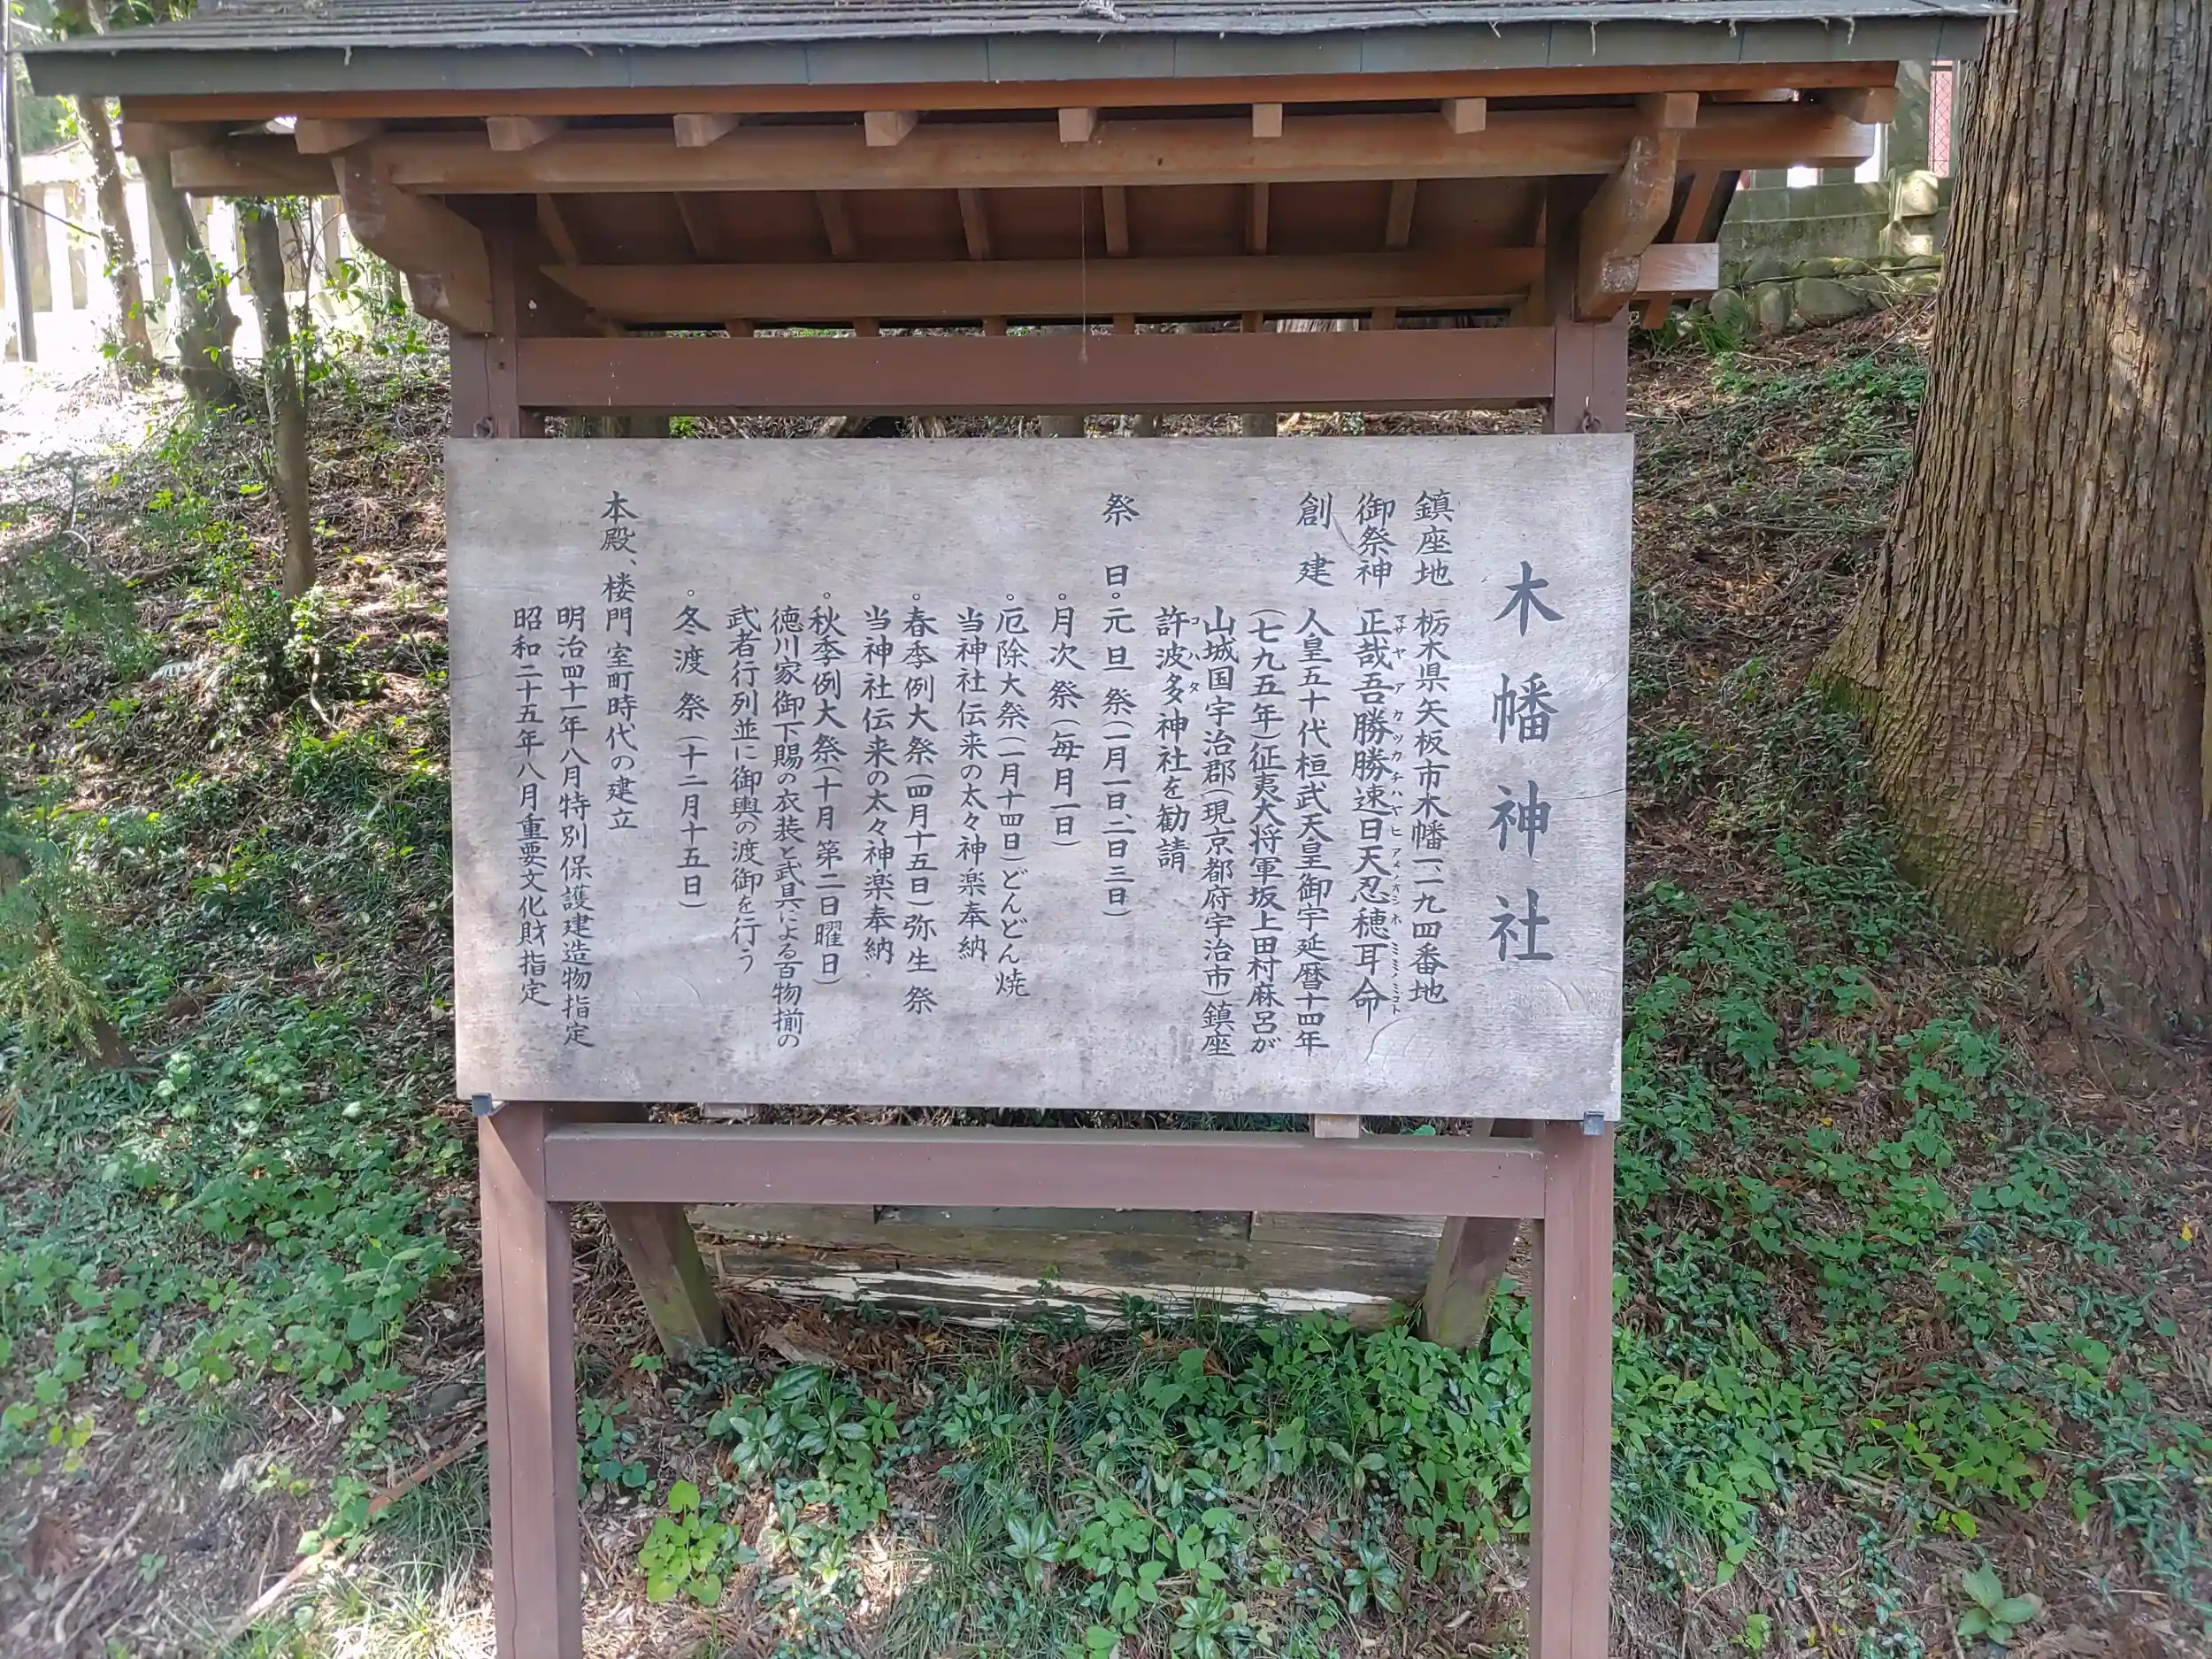 木幡神社
鎮座地 栃木県矢板市木幡一、二九四番地
御祭神 正哉吾勝勝速日天忍穂耳命
マサヤ ア カツカチハヤヒ アメノオシホ ミミノミコト
創 建 人皇五十代桓武天皇御宇延暦十四年
(七九五年)征夷大将軍坂上田村麻呂が
山城国宇治郡(現京都府宇治市)鎮座
許波多神社を勧請
コハタ
祭 日 。元旦祭(一月一日、二日三日)
。月次祭(毎月一日)
。厄除大祭(一月十四日)どんどん焼
当神社伝来の太々神楽奉納
。春季例大祭(四月十五日)弥生祭
当神社伝来の太々神楽奉納
。秋季例大祭(十月第二日曜日)
徳川家御下賜の衣装と武具による百物揃の
武者行列並に御輿の渡御を行う
。冬渡祭(十二月十五日)
本殿、楼門 室町時代の建立
明治四十一年八月特別保護建造物指定
昭和二十五年八月重要文化財指定